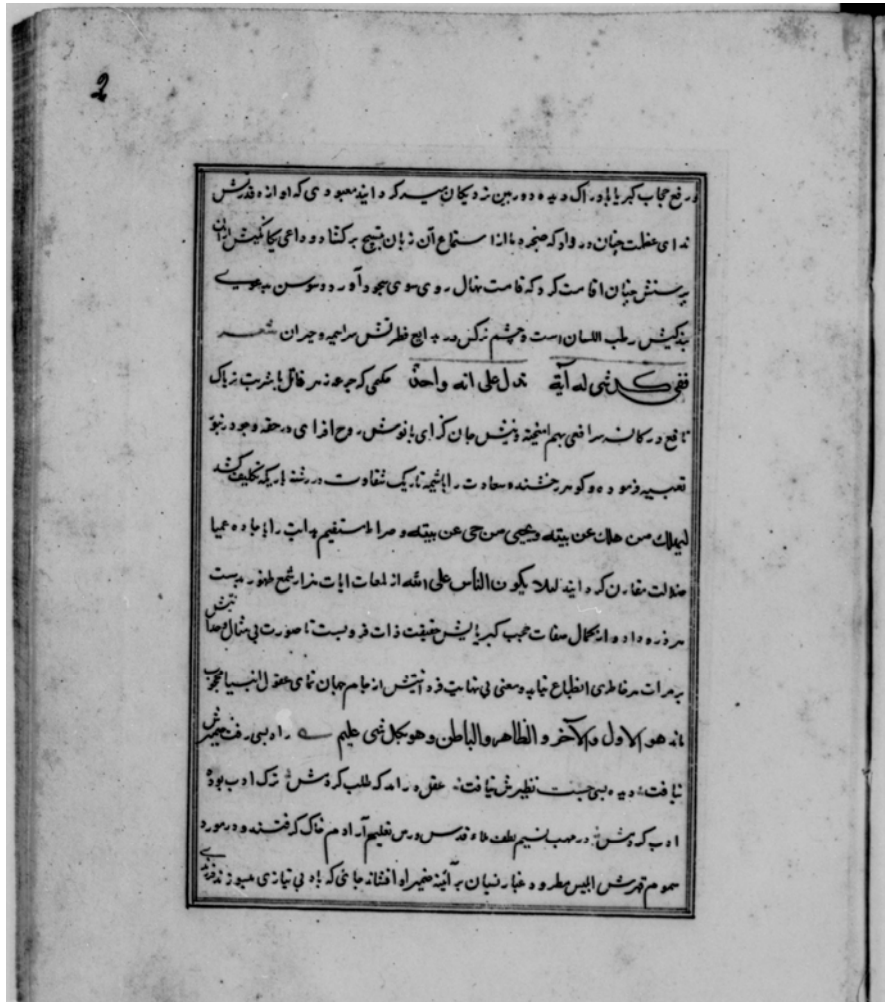 2
و رفع حجاب کبریا با دراک دیده دوربین نزدیکان میسر کرد ایند معبودی که اوازه قدرتش
ندای عظمت چنان در داد که صنجره را از استماع آن زبان بتسبیح برکشاد و داعی یکانکیش
پرستش چنان اقامت کرد که قامت نهال روی سوی سجود آورد و سوسن
بذکرش رطب اللسان است و چشم نرکس در فطرتش سراسیمه و حیران شعر
ففی کل شی له آیة تدل علی انه واحد حکیمی که جرعه زهر قاتل با شربت تریاک
نافع در کاسه سرافعی بهم امیخته و نیش جان کزای با نوش روح افزای در حقه وجود زنبور
تعبیه فرموده و کوهر رخشنده سعادت را با شبه تاریک شقاوت در رشته باریک تکلیف کشد
لیهلک من هلک عن بینه و یحیی من حی عن بینه و صراط مستقیم هدایت را با جاده عمیا
ضلالت مقارن کرد ایند لئلا یکون الناس علی الله از لمعات ایات هزار شمع ظهور بدست
هر ذره داد و از کمال صفات حجب کبریایش حقیقت ذات فرو بست تا صورت بی مثال
بر مرات هر خاطری انطباع نیابد و معنی بی نهایت فردانیتش از جام جهان نمای عقول انبیا محجوب
ماند هو الاول و الآخر و الظاهر و الباطن و هو بکل شی علیم راه بسی رفت ضمیرش
نیافت دیده بسی جست نظیرش نیافت عقل درامد که طلب کردمش ترک ادب بود
ادب کردمش در مهب نسیم لطف ملاء قدس درس تعلیم از ادم خاک کرفتند و در مورد
سموم قهرش ابلیس مطرود غبار نسیان بر آئینه ضمیر او افشاند جائی که باد بی نیازی میوزد